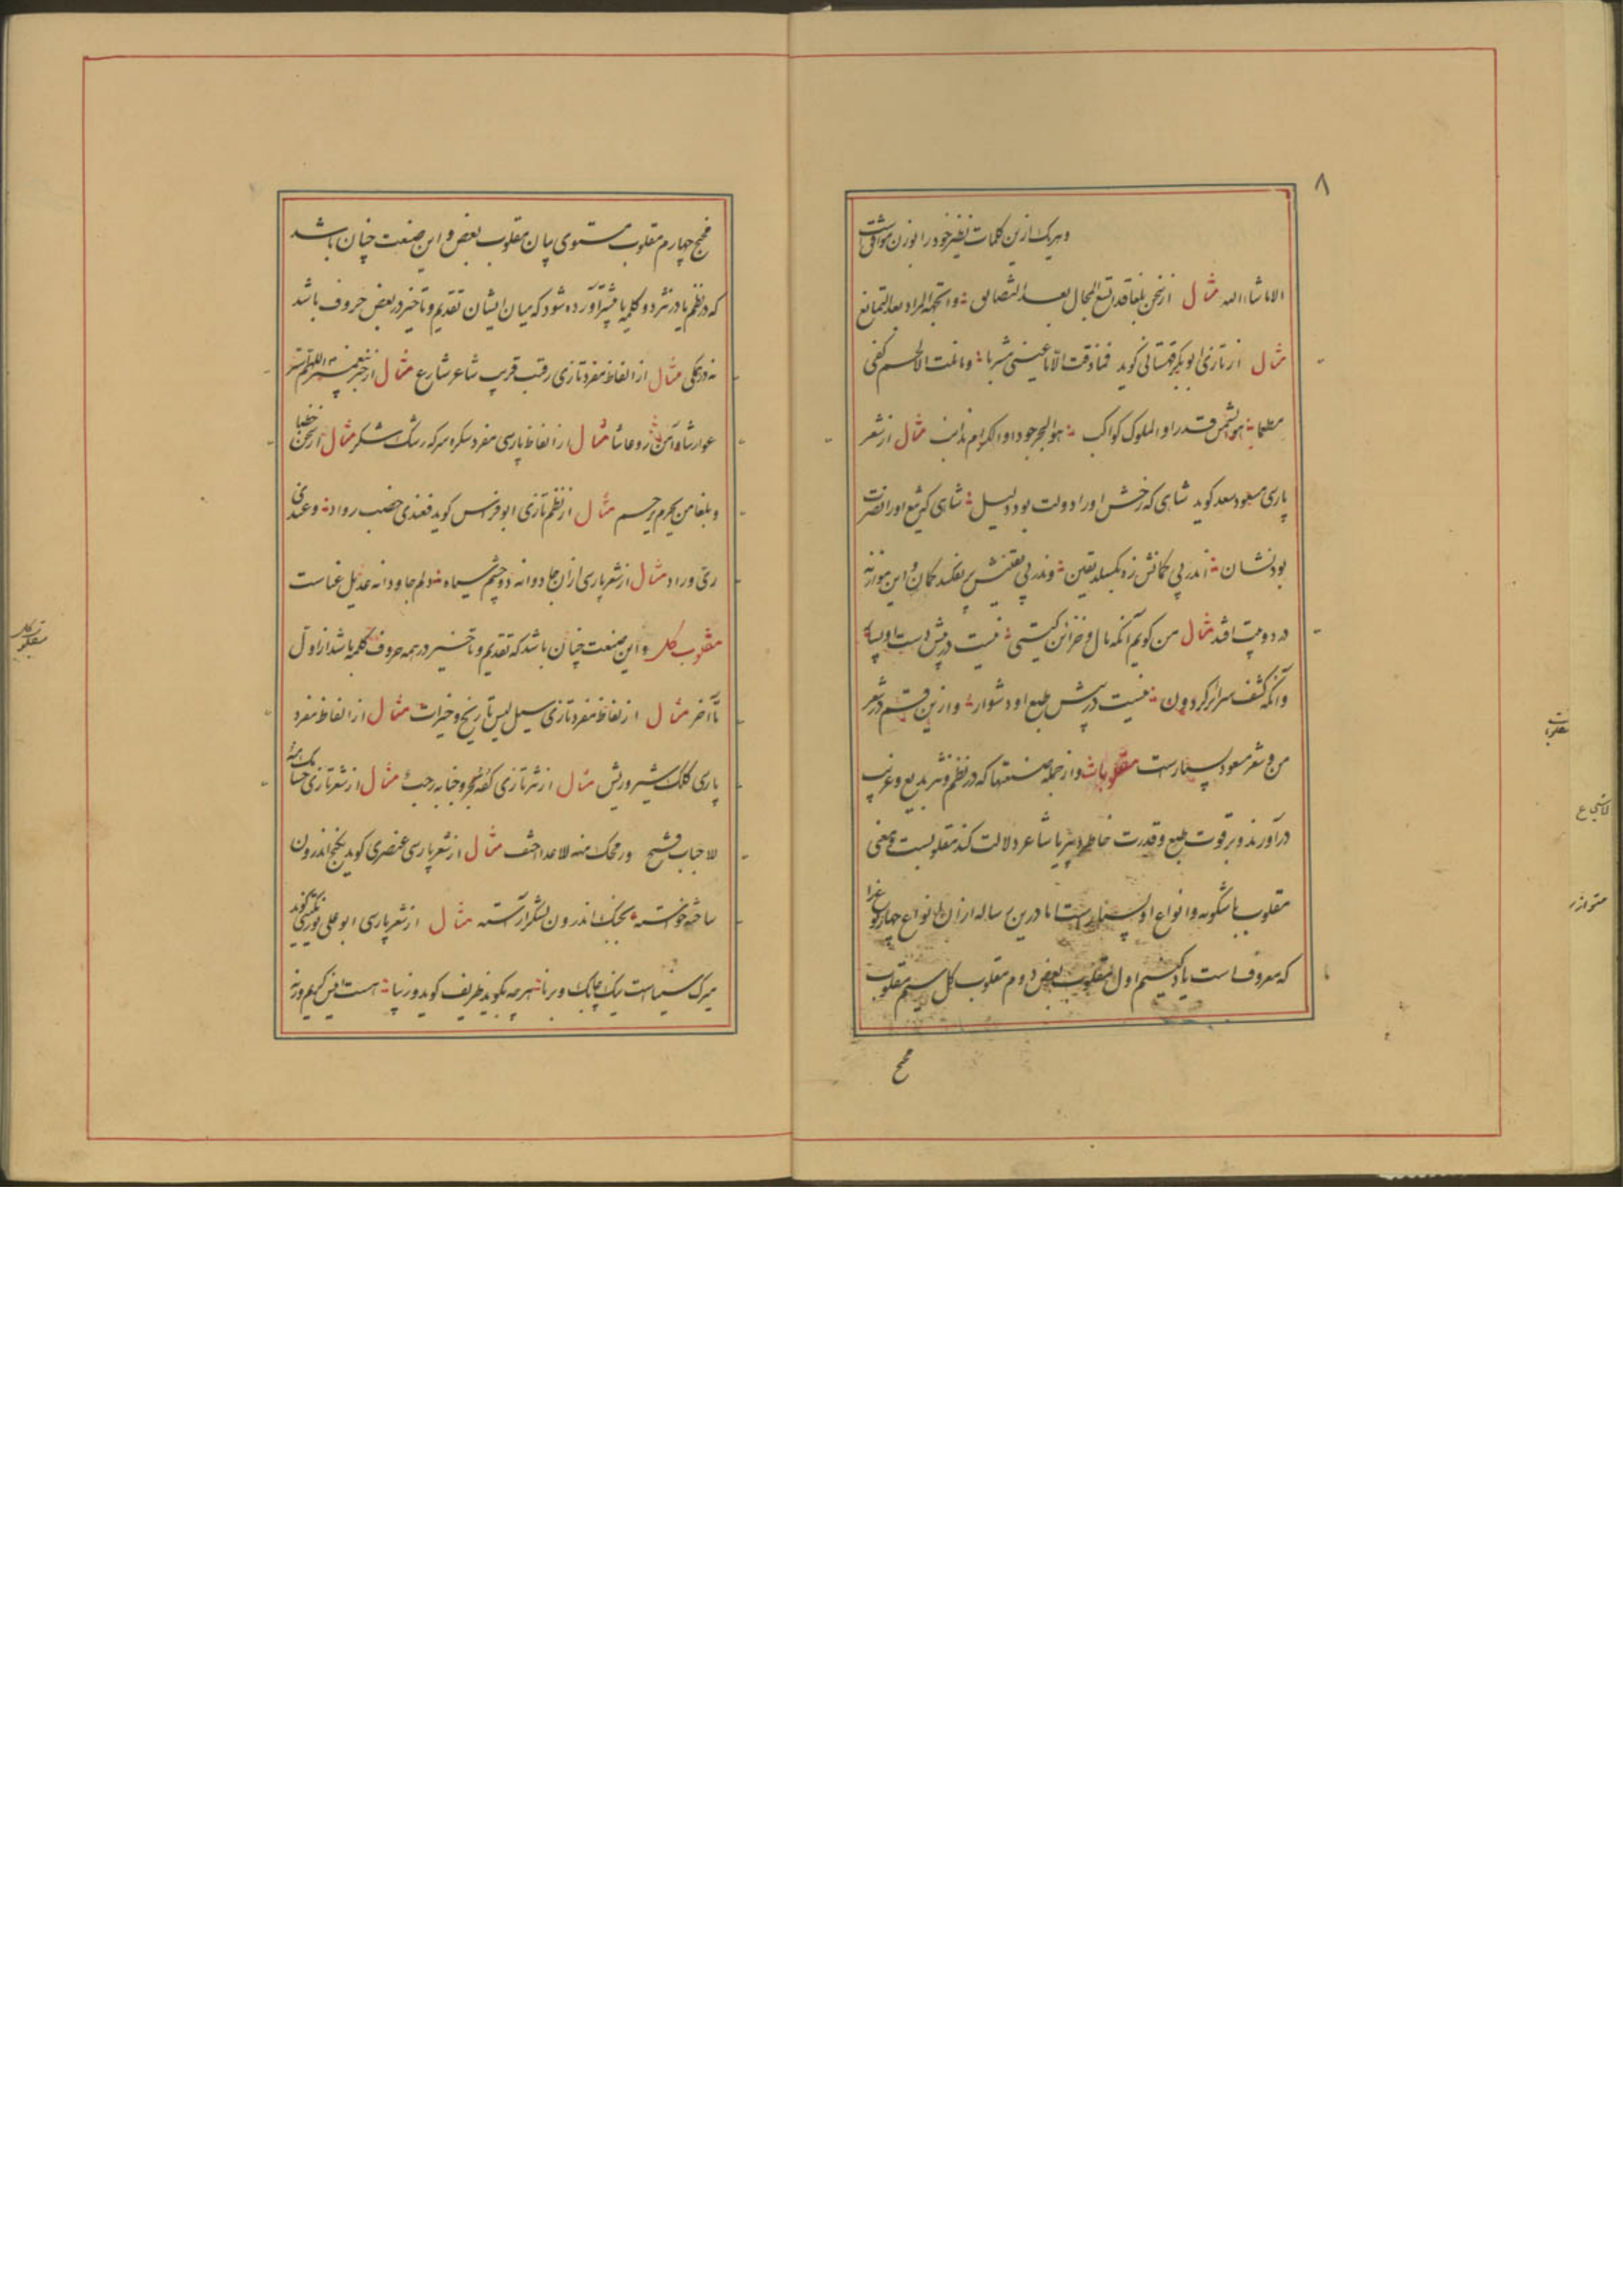 ۸
و هریک ازین کلمات نظیر خود را بوزن موافق
الا ما شاء الله مثال از سخن بلغا قد اتسع المجال بعد التضایق و اتجه المراد بعد التمانع
مثال از تازی ابوبکر قهستانی گوید فما ذقت الا ماء عینی مشربا و ما نلت الا لحم کفی
مطعما هو الشمس قدرا و الملوک کواکب هو البحر جودا و الکرام مذانب مثال از شعر
پارسی مسعود سعد گوید شاهی که رخش او را دولت بود دلیل شاهی که تیغ او را نصرت
بود نشان اندر پی کمانش زه بگسلد یقین وندر پی یقینش پر بفکند کمان و این موازنه
در دو بیت افتد مثال من گویم آنکه مال و خزائن گیتی نیست در پیش دست او بسیار
وانکه کشف سرائر گردون نیست در پیش طبع او دشوار و ازین قسم در شعر
من و شعر مسعود بسیارست مقلوبات و از جمله صنعتها که در نظم و نثر بدیع و غریب
در آورند و بر قوت طبع و قدرت خاطر دبیر یا شاعر دلالت کند مقلوبست و معنی
مقلوب باشگونه و انواع او بسیارست اما درین رساله از آن انواع چهار نوع را
که معروف است یاد کنیم اول مقلوب بعض دوم مقلوب کل سیم مقلوب
مجنح
مجنح چهارم مقلوب مستوی بیان مقلوب بعض و این صنعت چنان باشد
که در نظم یا در نثر دو کلمه یا بیشتر آورده شود که میان ایشان تقدیم و تاخیر در بعض حروف باشد
نه در کل مثال از الفاظ مفرد تازی رقیب قریب شاعر شارع مثال از خبر پیغمبر اللهم استر
عوراتنا و آمن روعاتنا مثال از الفاظ پارسی مفرد سکره سرکه رشک شکر مثال از سخن
و بلغا من یحرم یرحم مثال از نظم تازی ابو فراس گوید فعندی خصب رواد و عندی
ری وراد مثال از شعر پارسی از آن جادوانه دو چشم سیاه دلم جاودانه عدیل عناست
مقلوب کل و این صنعت چنان باشد که تقدیم و تاخیر در همه حروف کلمه باشد از اول
تا آخر مثال از الفاظ مفرد تازی سیل لیس تاریخ و خیرات مثال از الفاظ مفرد
پارسی کلک شیر و ریش مثال از نثر تازی کفه بحر و جنابه رحب مثال از شعر تازی حسامک منه
للاحباب فتح و رمحک منه للاعداء حتف مثال از شعر پارسی عنصری گوید بگنج اندرون
ساخته خواسته بجنگ اندرون لشکر آراسته مثال از شعر پارسی ابو علی گوید
میرک سیناست نیک چابک و برنا هرچه بگوید ظریف گوید و زیبا
مقلوب کل
مقلوبات
متوازن